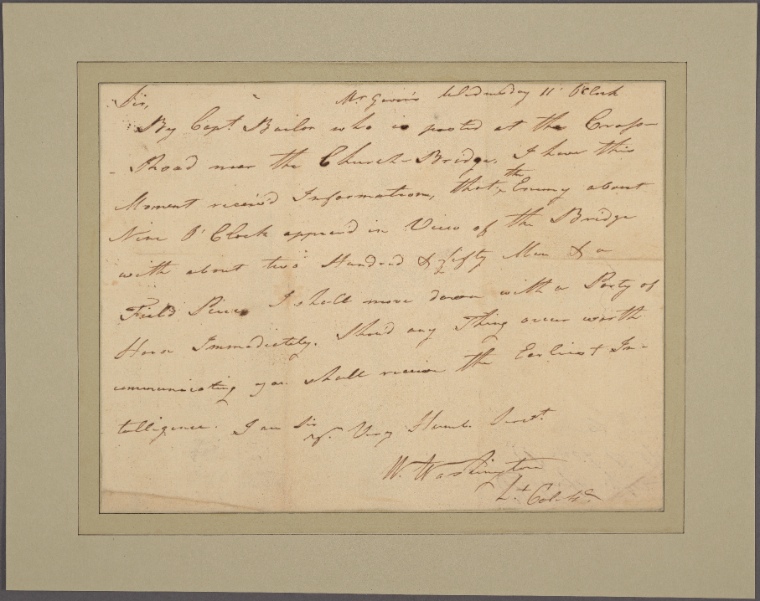 Sir, Wednesday 11 O'Clock
By Capt. Bailor who is posted at the Cross-
Road near the Church-Bridge, I have this
Moment receiv'd Information, that the Enemy about
Nine O'Clock appear'd in View of the Bridge
with about two Hundred & fifty Men & a
Field Piece. I shall move down with a Party of
Horse Immediately. Shoud any Thing occur worth
communicating you shall receive the Earliest In-
telligence. I am Sir
Yr. Very Humb. Servt.
W. Washington
Lt. Col.